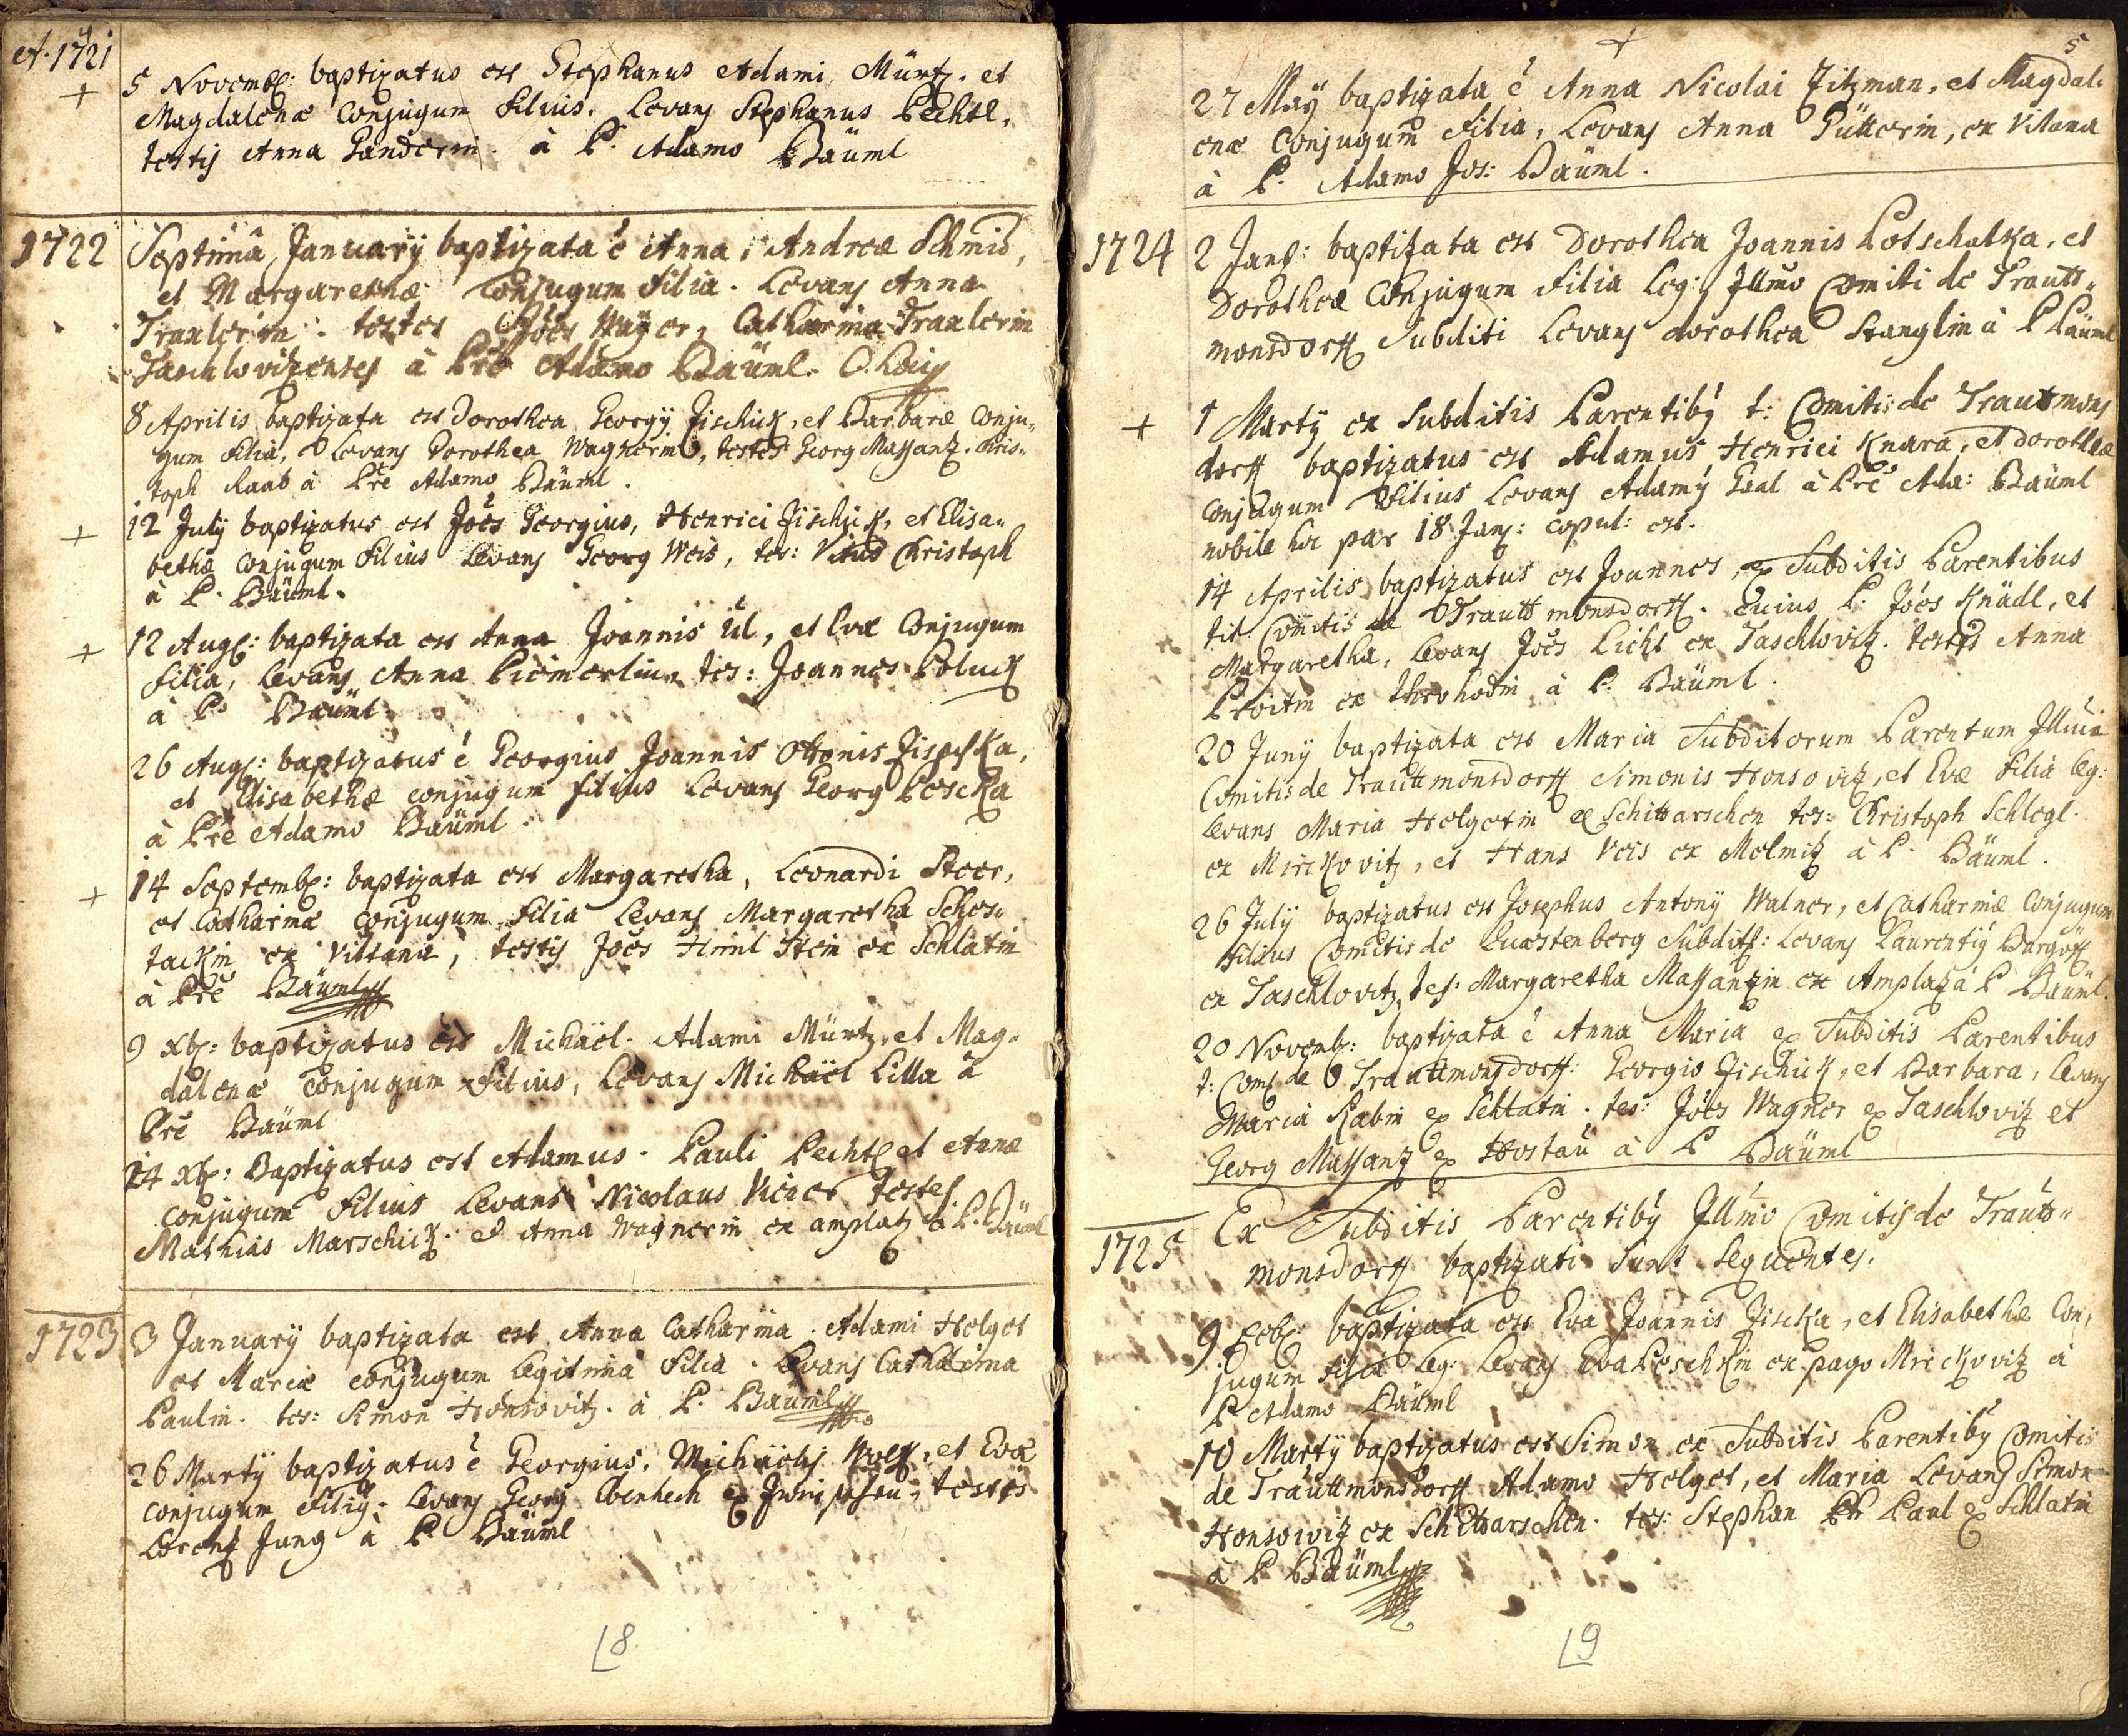 4
A. 1721
5 Novemb: baptizatus est Stephanus Adami Mürtz. et
Magdalenæ Conjugum Filius. Levans Stephanus Pechtl,
testis Anna Ganderin. à P. Adamo Bäuml
1722
Septima January baptizata ẽ Anna, Andreæ Schmid,
et Margarethæ Conjugum Filia. Levans Anna
Traxlerin. testes Joẽs Mayer, Catharina Traxlerin
Taschlovitzenses à Prẽ Adamo Bäuml.
8 Aprilis baptizata est Dorothea Georgÿ Zischick, et Barbaræ Conju„
gum Filia, Levans Dorothea Wagnerin, testes Georg Massantz. Chris„
toph Raab à Prẽ Adamo Bäuml.
12 July baptizatus est Joẽs Georgius, Henrici Zischick, et Elisa„
bethæ Conjugum Filius Levans Georg Weis, tes: Vitus Christoph
à P. Bäuml.
12 Aug: baptizata est Anna Joannis Ul, et Evæ Conjugum
Filia, Levans Anna tes: Joannes Poluck
à P. Bäuml.
26 Aug: baptizatus ẽ Georgius Joannis Zischka,
et Elisabethæ conjugum filius Levans Georg Poscka
à Prẽ Adamo Bäuml.
14 Septemb: baptizata est Margaretha, Leonardi Steer,
et Catharinæ conjugum Filia Levans Margaretha Schos„
tackin ex Vittana, testis Joẽs Himl Stein ex Schlatin
à Prẽ Bäuml
9 Xb: baptizatus est Michäel. Adami Mürtz, et Mag„
dalenæ conjugum Filius, Levans Michäel Lilla à
Prẽ Bäuml
24 Xb: Baptizatus est Adamus. Pauli Pechtl et Annæ
conjugum Filius Levans Nicolaus testes
Mathias Marschick. et Anna Wagnerin ex amplatz à P. Bäuml
1723
3 January baptizata est Anna Catharina. Adami Holget
et Mariæ conjugum legitima Filia. Levans Catharina
Paulin. tes: Simon Honsovitz. à P. Bäuml
26 Martÿ baptizatus ẽ Georgius, Michäelis Wolff, et Evæ
conjugum Filiꝰ. Levans Georg testes
Lorentz Jung à P. Bäuml
8
5
27 Maÿ baptizata ẽ Anna Nicolai Zitzman, et Magdal„
enæ Conjugum Filia, Levans Anna Güttorin, ex Vitana
à P. Adamo Jos: Bäuml.
1724
2 Jan: baptizata est Dorothea Joannis Potschatka, et
Dorotheæ Conjugum Filia Leg: Illmõ Comiti de Trautt„
monsdorff Subditi Levans dorothea Stanglin à P Bäuml
1 Martÿ ex Subditis Parentibꝰ t: Comitis de Trauttmons
dorff baptizatus est Adamus Henrici Knara, et dorotheæ
Conjugum Filius Levans Adamꝰ Gaal à Prẽ Ada: Bäuml
nobile hoc par 18 Jan: copul: est.
14 Aprilis baptizatus est Joannes, ex Subditis Parentibus
tit. Comitis de Trauttmonsdorff. Cuius P: Joẽs Knädl, et
Margaretha, Levans Joẽs Licht ex Taschlovitz. testis Anna
à P. Bäuml.
20 Juny baptizata est Maria Subditorum Parentum
Comitis de Trauttmonsdorff Simonis Honsovitz, et Evæ Filia leg:
Levans Maria Holgetin ex Schittarschen tes: Christoph Schlegl.
ex Mirckovitz, et Hans Veis ex Melmitz à P. Bäuml.
26 July baptizatus est Josephus Antony Walner, et Catharinæ Conjugum
Filius Comitis de Questenberg Subdit: Levans Laurentiꝰ
ex Taschlovitz, tes: Margaretha Massantzin ex Amplaz à P Bäuml.
20 Novemb: baptizata ẽ Anna Maria ex Subditis Parentibus
t: Com: de Trauttmonsdorff. Georgio Zischick, et Barbara, Levans
Maria Rabin ex Schlatin. tes: Joẽs Wagner ex Taschlovitz et
Georg Massanz ex Hostau à P Bäuml
1725
Ex Subditis Parentibꝰ Illmõ Comitis de Trautt„
monsdorff baptizati sunt sequentes.
9 Feb: baptizata est Eva Joannis Zischka, et Elisabethæ Con„
jugum Filia leg: Levans Eva Poschkin ex pago Mirckovitz à
P Adamo Bäuml
10 Martÿ baptizatus est Simon ex Subditis Parentibꝰ Comitis
de Trauttmonsdorff Adamo Holget, et Maria Levans Simon
Honsowitz ex Schittarschen tes: Stephan Paul ex Schlatin
à P Bäuml
9